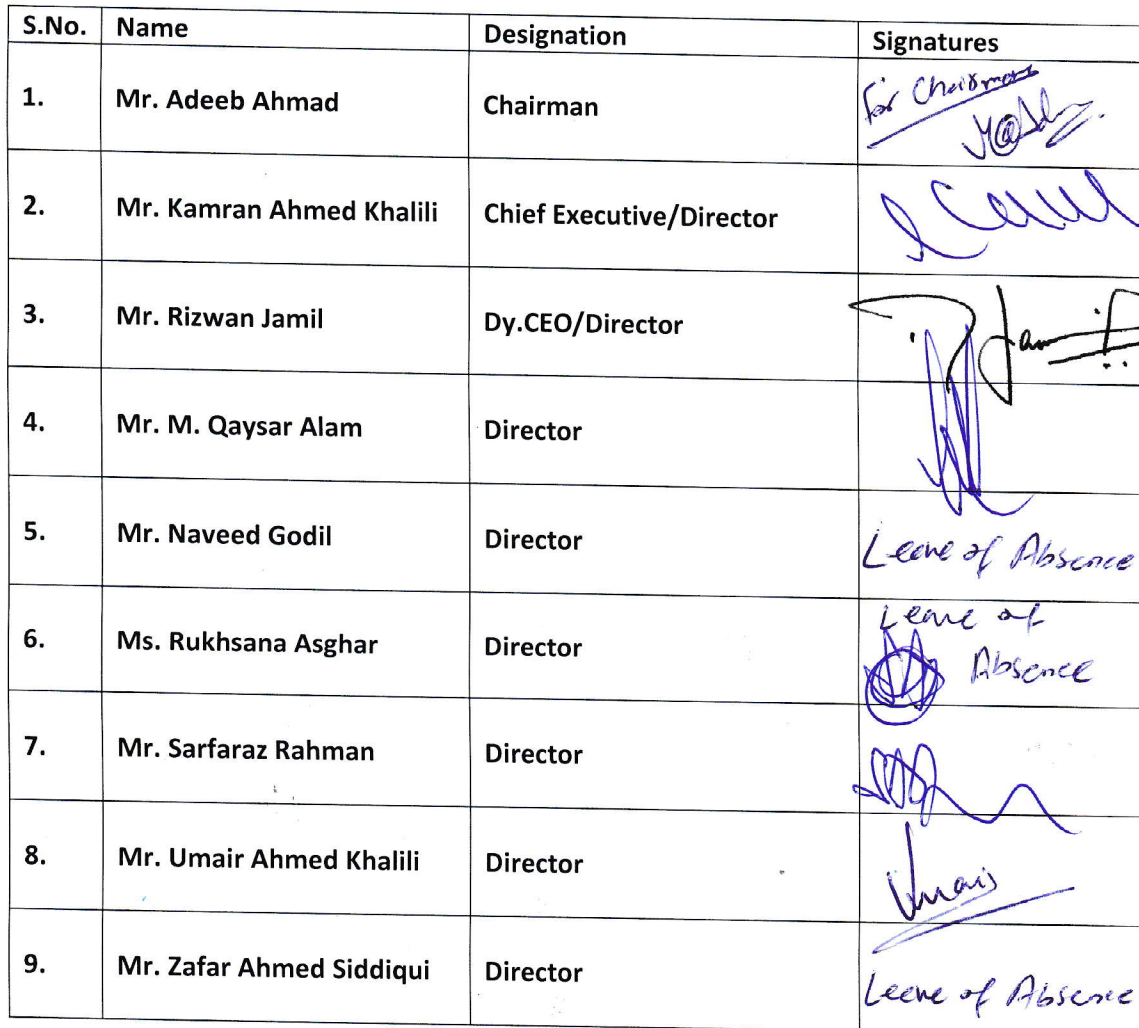 S.No. Name Designation Signatures
1. Mr. Adeeb Ahmad Chairman For Chairman
2. Mr. Kamran Ahmed Khalili Chief Executive/Director
3. Mr. Rizwan Jamil Dy.CEO/Director
4. Mr. M. Qaysar Alam Director
5. Mr. Naveed Godil Director Leave of Absence
6. Ms. Rukhsana Asghar Director Leave of
Absence
7. Mr. Sarfaraz Rahman Director
8. Mr. Umair Ahmed Khalili Director
9. Mr. Zafar Ahmed Siddiqui Director Leave of Absence